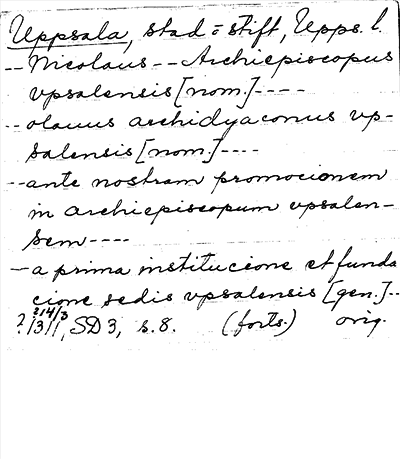 Uppsala, stad o stift, Upps. l.
-- Nicolaus -- Archiepiscopus
vpsalensis [nom.] ----
-- olauus archidyaconus vp-
salensis [nom.] ----
-- ante nostram promocionem
in archiepiscopum vpsalen-
sem ----
— a prima institucione et funda
cione sedis vpsalensis [gen.] --
? 14/3
? 1311, SD 3, s. 8. (forts.) orig.